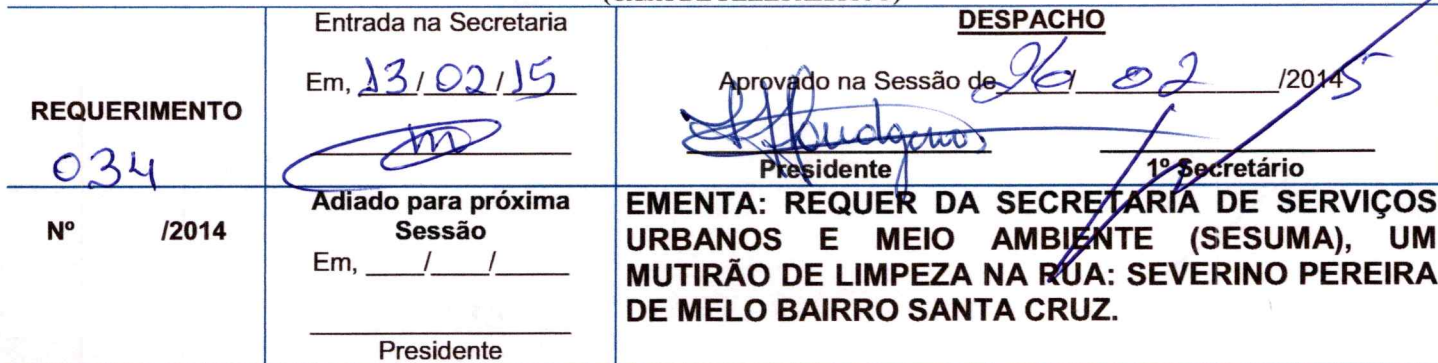 Entrada na Secretaria
Em, 13/02/15
REQUERIMENTO
034
DESPACHO
Aprovado na Sessão de 26/ 02 /2014 5
Presidente
1º Secretário
Nº /2014
Adiado para próxima
Sessão
Em, ____/____/______
Presidente
EMENTA: REQUER DA SECRETARIA DE SERVIÇOS
URBANOS E MEIO AMBIENTE (SESUMA), UM
MUTIRÃO DE LIMPEZA NA RUA: SEVERINO PEREIRA
DE MELO BAIRRO SANTA CRUZ.